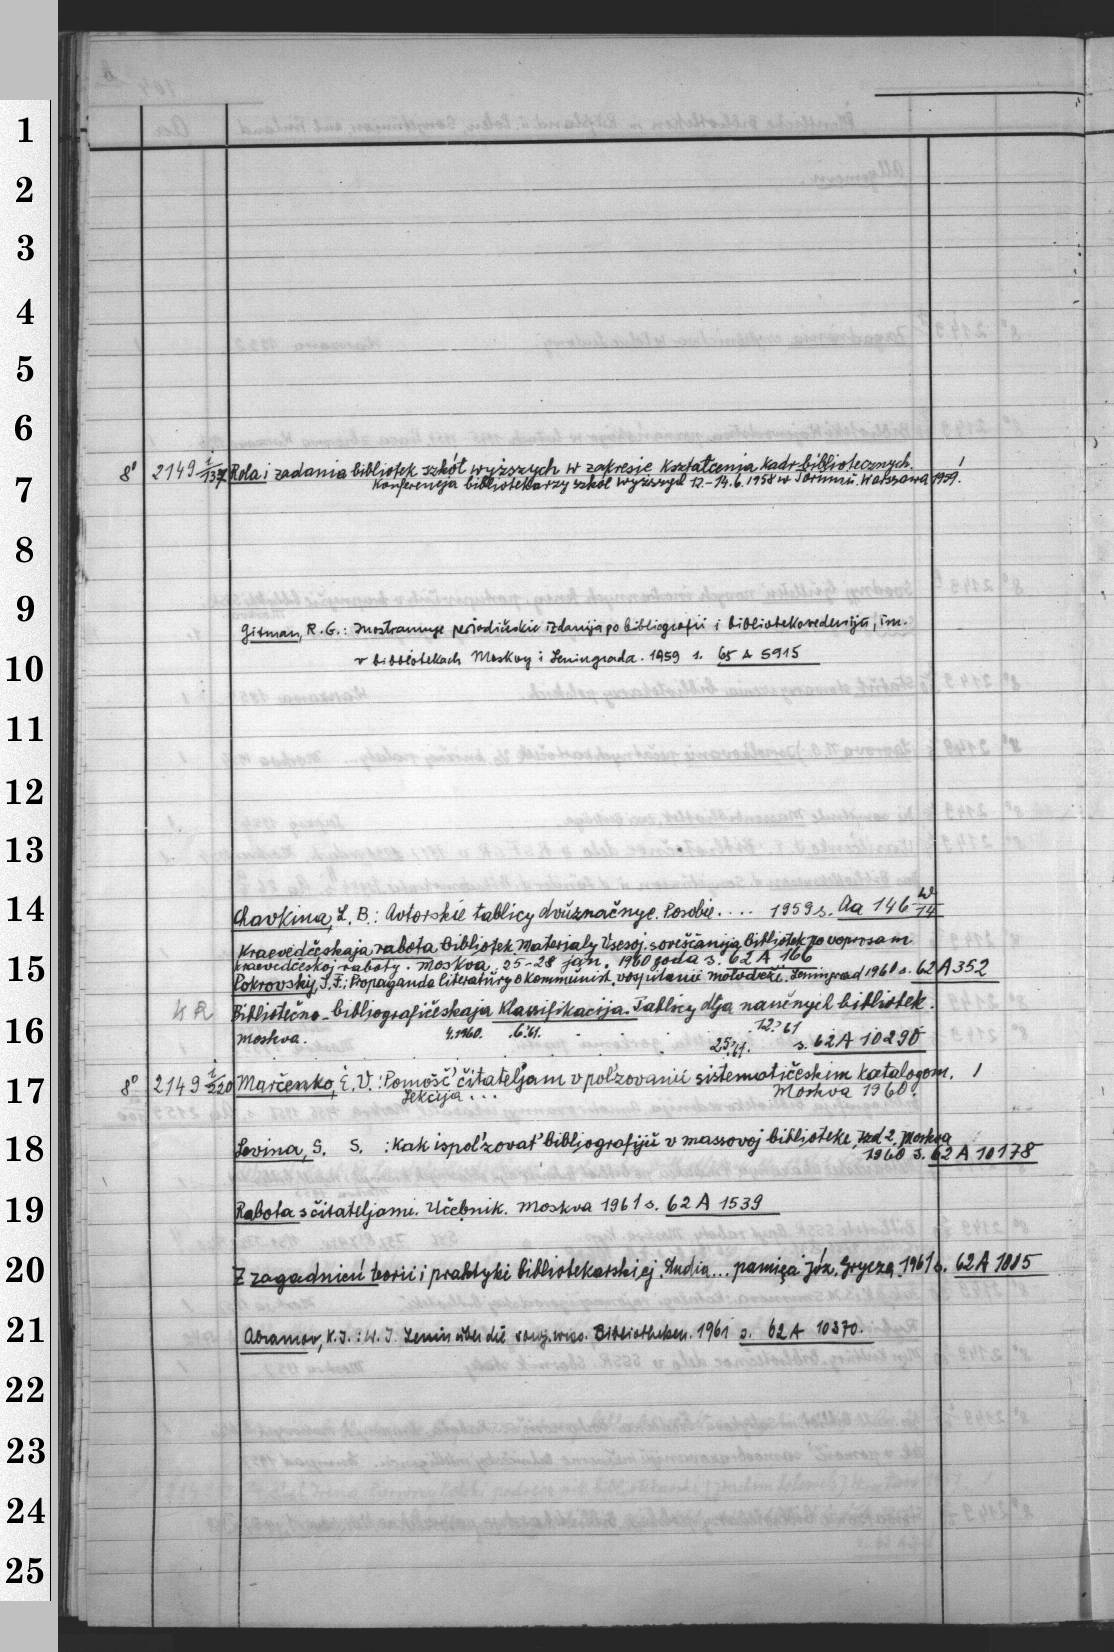 1
2
3
4
5
6
8° 2149 i/137 Rola i zadania bibliotek szkół wyższych w zakresie kształcenia kadr bibliotecznych. 1
Konferencja bibliotekarzy szkół wyższych 12.-14.6.1958 w Toruniu. Warszawa 1959.
7
8
9
Gitman, R.G.: Inostrannye periodičeskie izdanija po bibliografii i bibliotekovedeniju, im.
v bibliotekach Moskvy i Leningrada. 1959 s. 65 A 5915
10
11
12
13
14
Chavkina, L. B.: Avtorskie tablicy dvuznačnye. Posobie.... 1959 s. Aa 146 w/14
Kraevedčeskaja rabota bibliotek Materialy Vsesoj. soveščanija bibliotek po voprosam
kraevedčeskoj raboty. Moskva 25-28 jan. 1960 goda s. 62 A 166
15
Pokrovskij, I.F.: Propaganda literatury o kommunist. vospitanii molodeži. Leningrad 1960 s. 62 A 352
Bibliotečno-bibliografičeskaja Klassifikacija. Tablicy dlja naučnych bibliotek.
16
Moskva. 4.1960. 6.'61. 12.'61
25.'71. s. 62 A 10290
8° 2149 i/220 Marčenko, E. V.: Pomošč' čitateljam v pol'zovanii sistematičeskim katalogom. 1
17
Lekcija... Moskva 1960.
18
Levina, S. S. : Kak ispol'zovat' bibliografiju v massovoj biblioteke. Izd 2. Moskva
1960 s. 62 A 10178
19
Rabota s čitateljami. Učebnik. Moskva 1961 s. 62 A 1539
20
Z zagadnień teorii i praktyki bibliotekarskiej. Studia... pamięci Józ. Grycza. 1961 s. 62 A 1015
21
Abramov, K.I.: W. I. Lenin über die wiss. Bibliotheken. 1961 s. 62 A 10370.
22
23
24
25